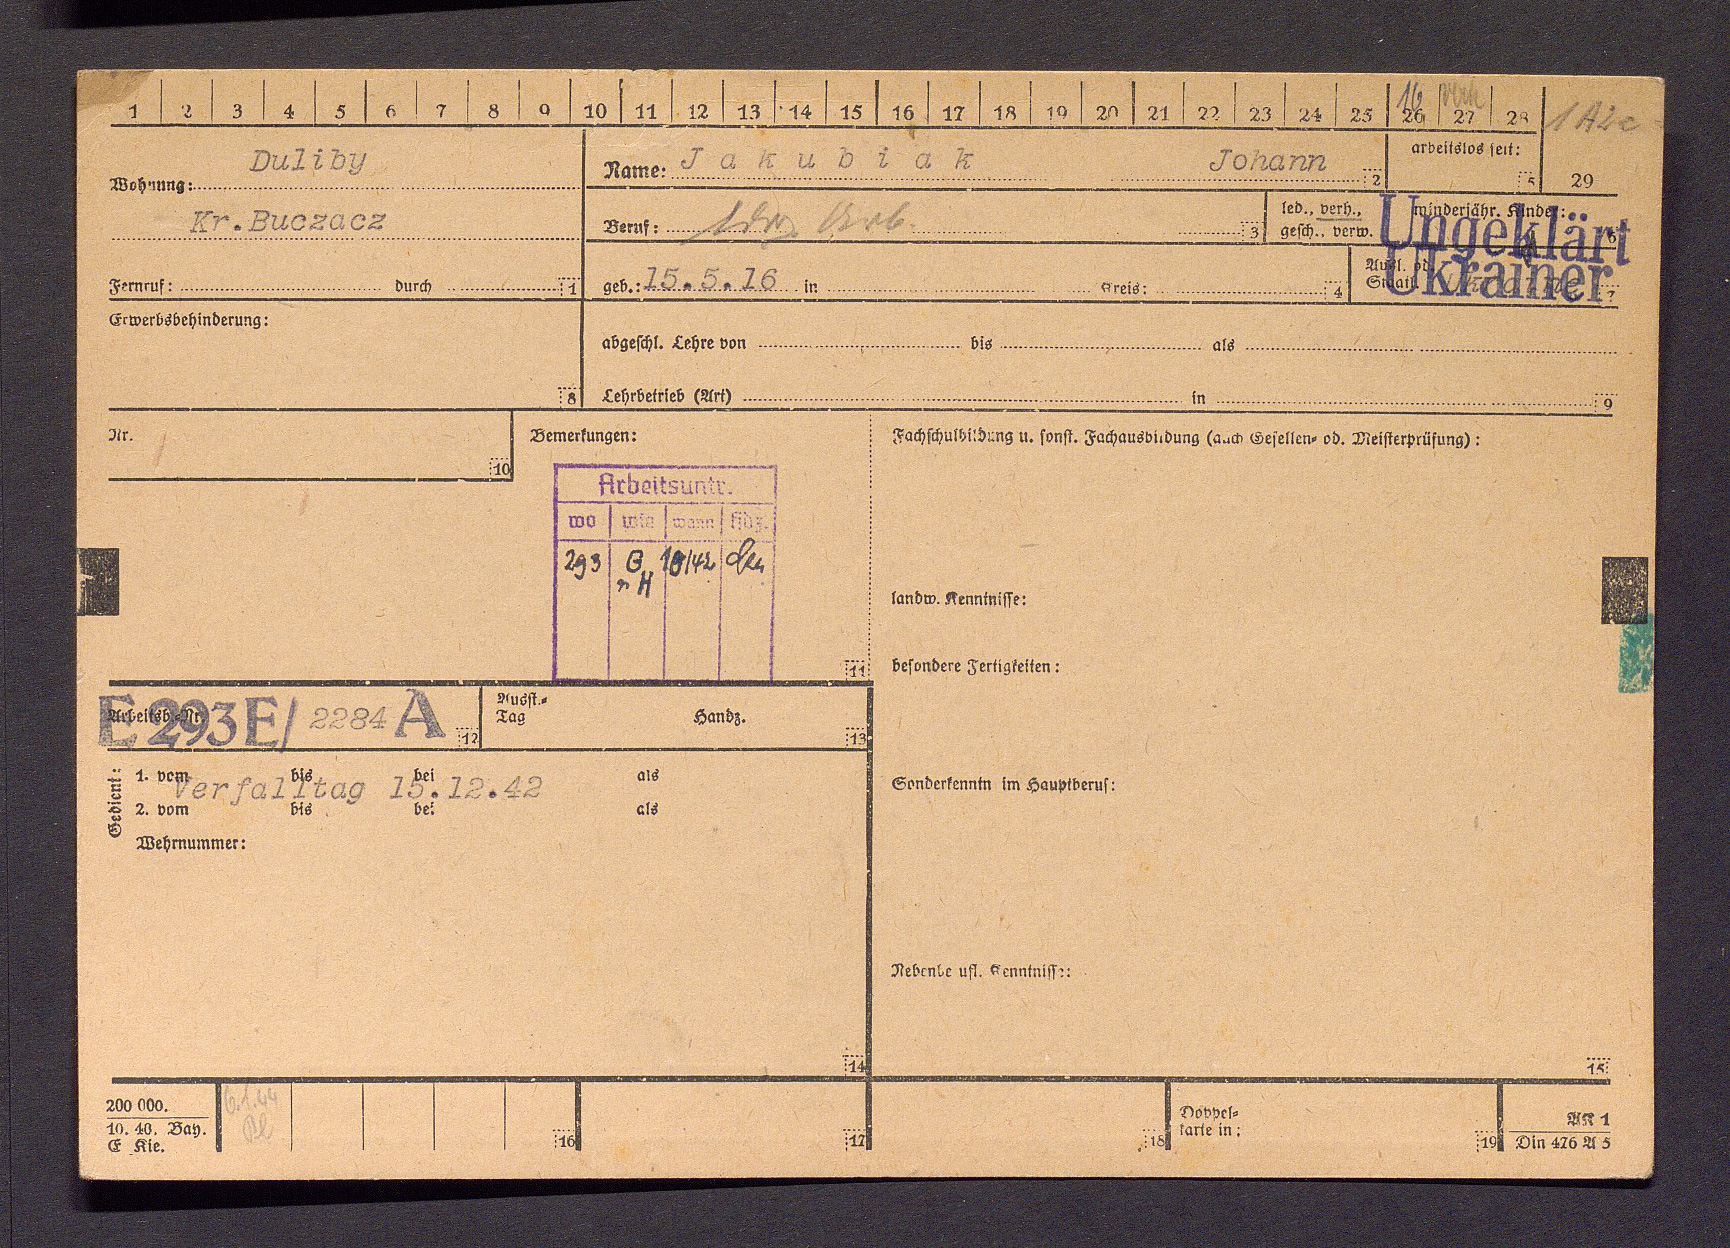 1 2 3 4 5 6 7 8 9 10 11 12 13 14 15 16 17 18 19 20 21 22 23 24 25 26 27 28
16
1 A2c
Duliby
Wohnung:
Kr.Buczacz
Fernruf: durch 1
Name: Jakubiak Johann 2
arbeitslos seit: 5
29
Beruf: 3
led., verh.,
gesch., verw.
minderjähr. Kinder: 6
Ungeklärt
Ukrainer
geb.: 15.5.16 in Kreis: 4
Ausl. od.
Staatl. 7
Erwerbsbehinderung:
8
abgeschl. Lehre von bis als
Lehrbetrieb (Art) in 9
Nr.
10
Bemerkungen:
Arbeitsuntr.
wo wie wann Hdz.
293 G 10/42
n H
11
Fachschulbildung u. sonst. Fachausbildung (auch Gesellen- od. Meisterprüfung):
landw. Kenntnisse:
besondere Fertigkeiten:
Sonderkenntn im Hauptberuf:
Nebenberufl. Kenntnisse:
15
Arbeitsb.-Nr.
E 293 E/ 2284 A 12
Ausst.-
Tag Handz. 13
Gedient:
1. vom bis bei als
Verfalltag 15.12.42
2. vom bis bei als
Wehrnummer:
14
200 000.
10. 40. Bay.
E Kie.
6.1.44
16 17 18
Doppel-
karte in: 19
AN 1
Din 476 A 5